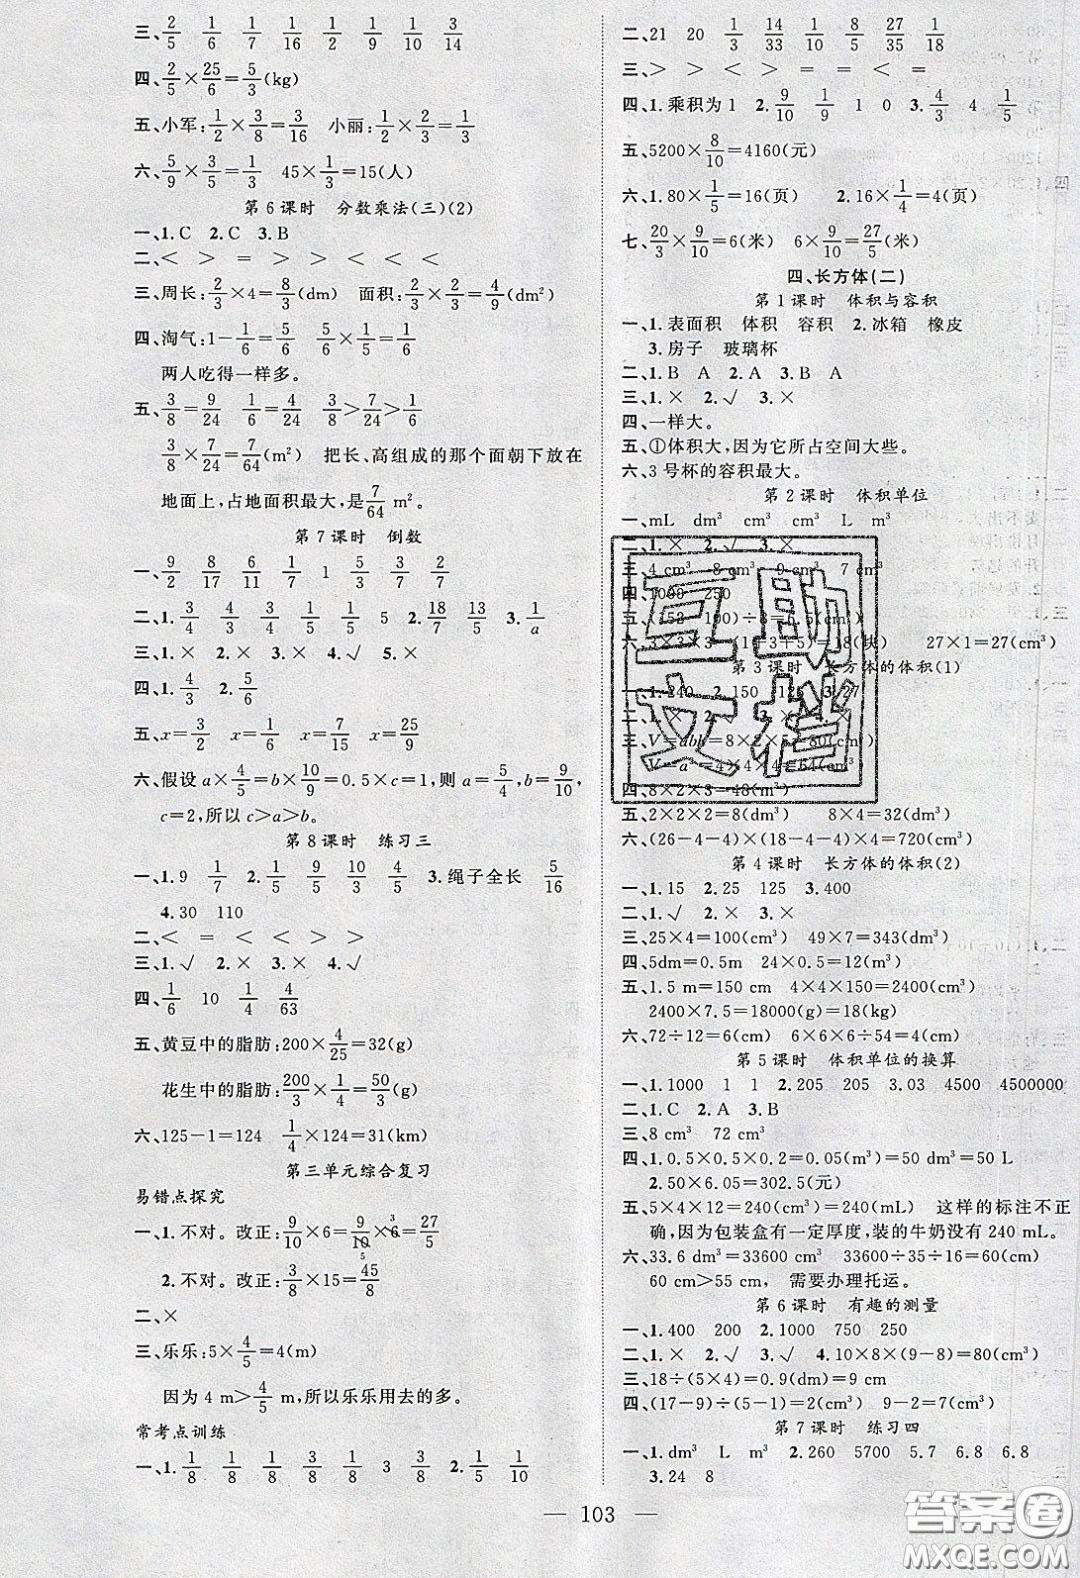 三、2/5 1/6 1/7 1/16 1/8 1/9 1/10 3/14
四、2/5×25/6=5/3(kg)
五、小军:1/2×3/8=3/16 小丽:1/2×2/3=1/3
六、5/9×3/5=1/3 45×1/3=15(人)
第 6 课时 分数乘法(三)(2)
一、1.C 2.C 3.B
二、< > = > > < < <
三、周长:2/3×4=8/3(dm) 面积:2/3×2/3=4/9(dm²)
四、淘气:1-1/6=5/6
两人吃得一样多。
五、3/8=9/24 1/6=4/24 3/8>7/24>1/6
3/8×7/24=7/64(m²) 把长、高组成的那个面朝下放在
地面上,占地面积最大,是7/64 m²。
第 7 课时 倒数
一、9/17 8/17 6/11 1/7 1 5/3 3/7 2/7
1/a
三、1.× 2.× 3.× 4.√ 5.×
四、1.4/3 2.5/6
五、x=3/2 x=1/6 x=7/15 x=25/9
六、假设a×4/5=b×10/9=0.5×c=1,则a=5/4,b=9/10,
c=2,所以 c>a>b。
第 8 课时 练习三
一、1.9 1/7 2.1/5 5/9 10/3 4/3 3.绳子全长 5/16
4.30 110
二、< = < < > >
三、1.√ 2.× 3.× 4.√
四、1/6 10 1/4 4/63
五、黄豆中的脂肪:200×4/25=32(g)
花生中的脂肪:200/3×1/4=50/3(g)
六、125-1=124 1/4×124=31(km)
第三单元综合复习
易错点探究
一、1.不对。改正:9/10×6=9/10×6=27/5
2.不对。改正:3/8×15=45/8
二、×
三、乐乐:5×4/5=4(m)
因为 4 m>4/5 m,所以乐乐用去的多。
常考点训练
一、1.1/8 1/8 3/8 1/8 3 3/8 2.1/5 1/10
二、21 20 1/3 14/3 1/8 7/8 27/35 1/18
三、> > < > = = < =
四、1.乘积为 1 2.10/9 1/9 1 0 3.4/3 4 1/5
五、5200×8/10=4160(元)
六、1.80×1/5=16(页) 2.16×1/4=4(页)
七、20/3×9/10=6(米) 6×9/10=27/5(米)
四、长方体(二)
第 1 课时 体积与容积
一、1.表面积 体积 容积 2.冰箱 橡皮
3.房子 玻璃杯
二、1.B A 2.A 3.B A
三、1.× 2.√ 3.×
四、一样大。
五、①体积大,因为它所占空间大些。
六、3 号杯的容积最大。
第 2 课时 体积单位
一、mL dm³ cm³ cm³ L m³
二、1.× 2.√ 3.×
三、4 cm³ 8 cm³ 9 cm³ 7 cm³
四、1000 250
27×1=27(cm³)
第 3 课时 长方体的体积(1)
一、1.240 2.150 12 3.27
四、8×2×3=48(m³)
五、2×2×2=8(dm³) 8×4=32(dm³)
六、(26-4-4)×(18-4-4)×4=720(cm³)
第 4 课时 长方体的体积(2)
一、1.15 2.25 125 3.400
二、1.√ 2.× 3.×
三、25×4=100(cm³) 49×7=343(dm³)
四、5dm=0.5m 24×0.5=12(m³)
五、1.5 m=150 cm 4×4×150=2400(cm³)
2400×7.5=18000(g)=18(kg)
六、72÷12=6(cm) 6×6×6÷54=4(cm)
第 5 课时 体积单位的换算
一、1.1000 1 1 2.205 205 3.03 4500 4500000
二、1.C 2.A 3.B
三、8 cm³ 72 cm³
四、1.0.5×0.5×0.2=0.05(m³)=50 dm³=50 L
2.50×6.05=302.5(元)
五、5×4×12=240(cm³)=240(mL) 这样的标注不正
确,因为包装盒有一定厚度,装的牛奶没有 240 mL。
六、33.6 dm³=33600 cm³ 33600÷35÷16=60(cm)
60 cm>55 cm, 需要办理托运。
第 6 课时 有趣的测量
一、1.400 200 2.1000 750 250
二、1.× 2.√ 3.√ 4.10×8×(9-8)=80(cm³)
三、18÷(5×4)=0.9(dm)=9(cm)
四、(17-9)÷(5-1)=2(cm³) 9-2=7(cm³)
第 7 课时 练习四
一、1.dm³ L m³ 2.260 5700 5.7 6.8 6.8
3.24 8
— 103 —
互助文档
答案圈
MXQE.COM